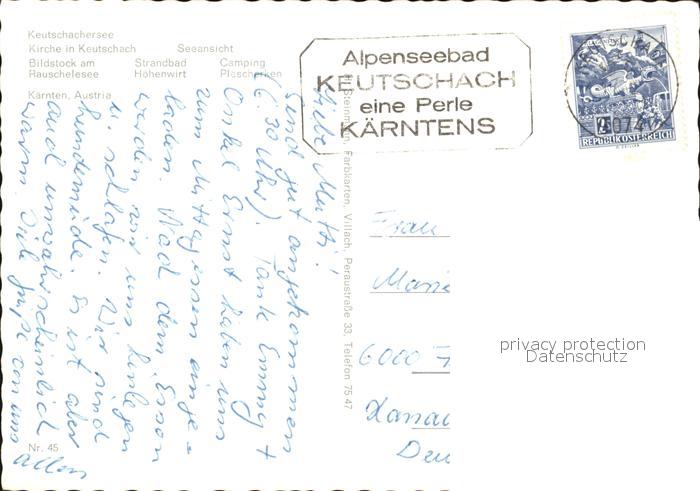 Keutschachersee
Kirche in Keutschach Seeansicht
Bildstock am Strandbad Camping
Rauschelesee Höhenwirt Plescherken
Kärnten, Austria
Alpenseebad
KEUTSCHACH
eine Perle
KÄRNTENS
4
9074
REPUBLIK ÖSTERREICH
Liebe Mutti!
Sind gut angekommen
(6.30 Uhr). Tante Emmy +
Onkel Ernst haben uns
zum Mittagessen einge-
laden. Nach dem Essen
werden wir uns hinlegen
u. schlafen. Wir sind
hundemüde. Es ist aber
auch unwahrscheinlich
warm. Viele Grüße von uns
allen
Nr. 45
Farbkarten, Villach, Peraustraße 33, Telefon 75 47
Frau
Marie
6000 F
Hanau
Deu
privacy protection
Datenschutz